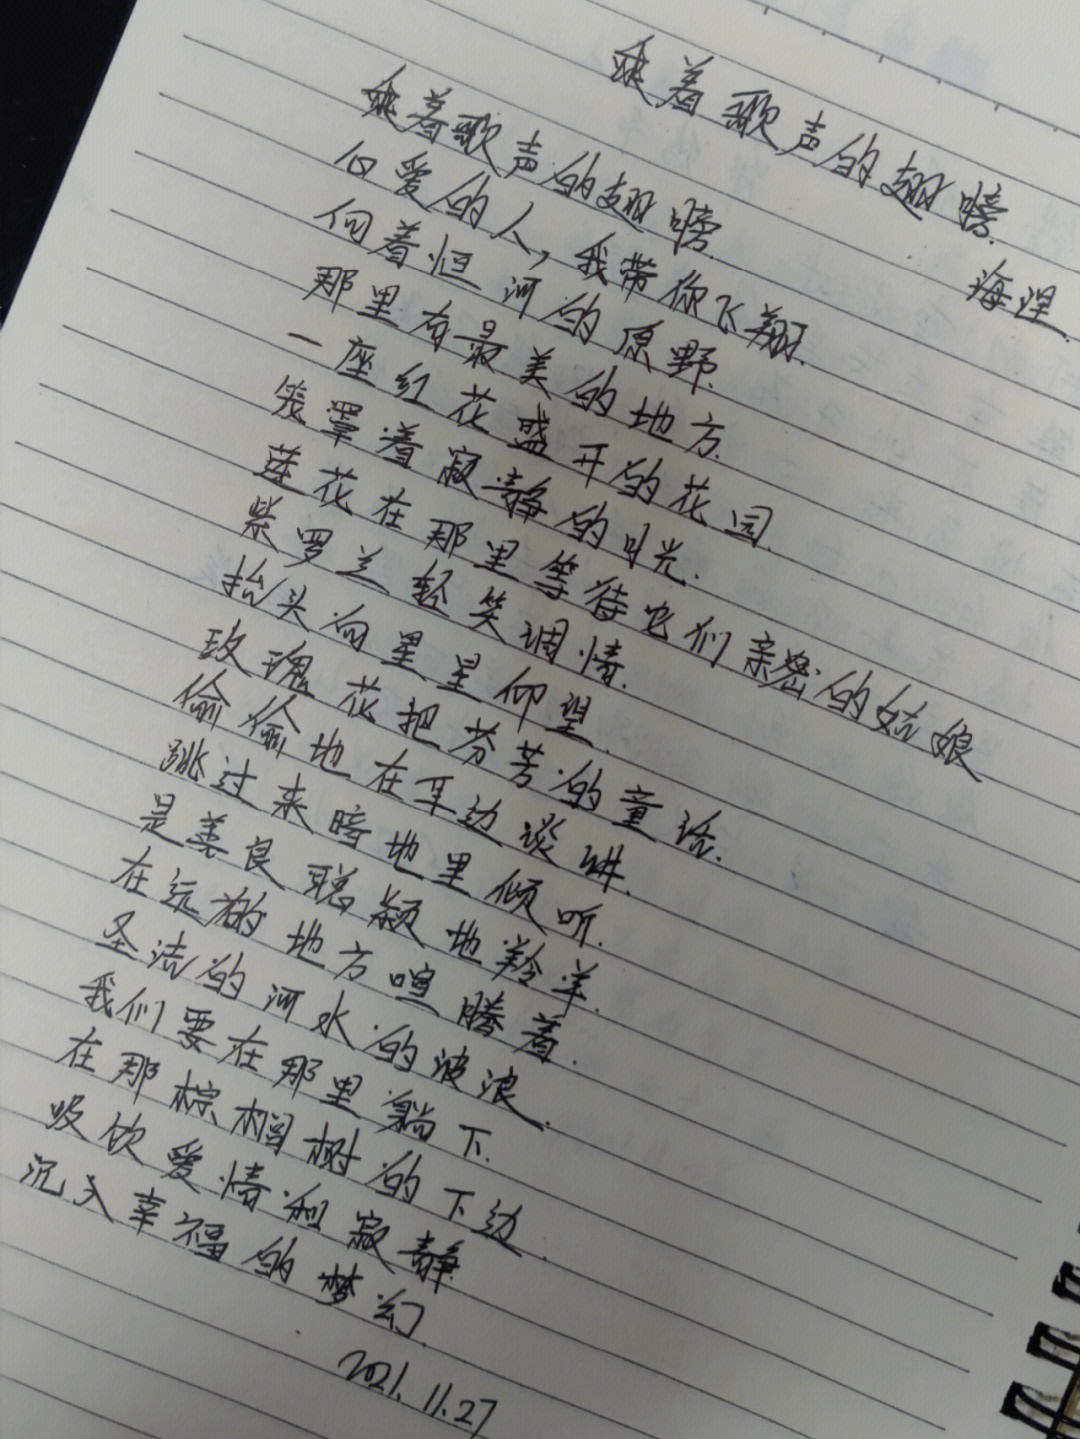 乘着歌声的翅膀.
海涅.
乘着歌声的翅膀.
心爱的人,我带你飞翔.
向着恒河的原野.
那里有最美的地方.
一座红花盛开的花园.
笼罩着寂静的月光.
莲花在那里等待它们亲密的姑娘
紫罗兰轻笑调情.
抬头向星星仰望.
玫瑰花把芬芳的童话.
偷偷地在耳边谈讲.
跳过来暗地里倾听.
是善良聪颖地羚羊.
在远的地方喧腾着.
圣洁的河水的波浪.
我们要在那里躺下.
在那棕榈树的下边.
吸饮爱情和寂静.
沉入幸福的梦幻.
2021.11.27